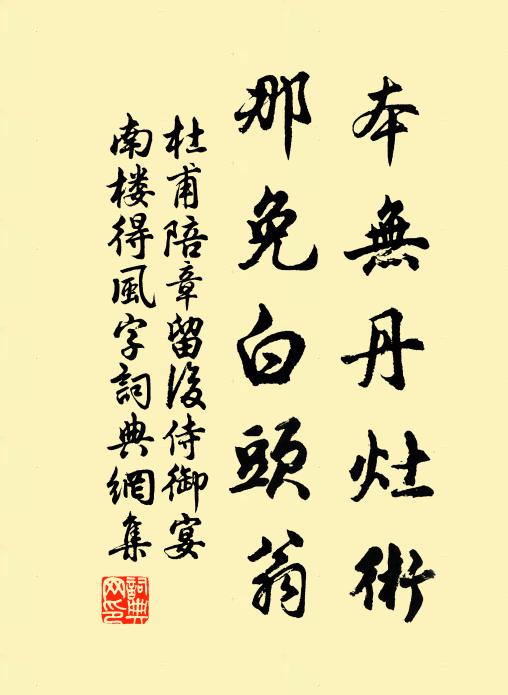 本無丹灶術
那免白頭翁
杜甫陪章留後侍御宴
南楼得風字詞典網集
詞典網印